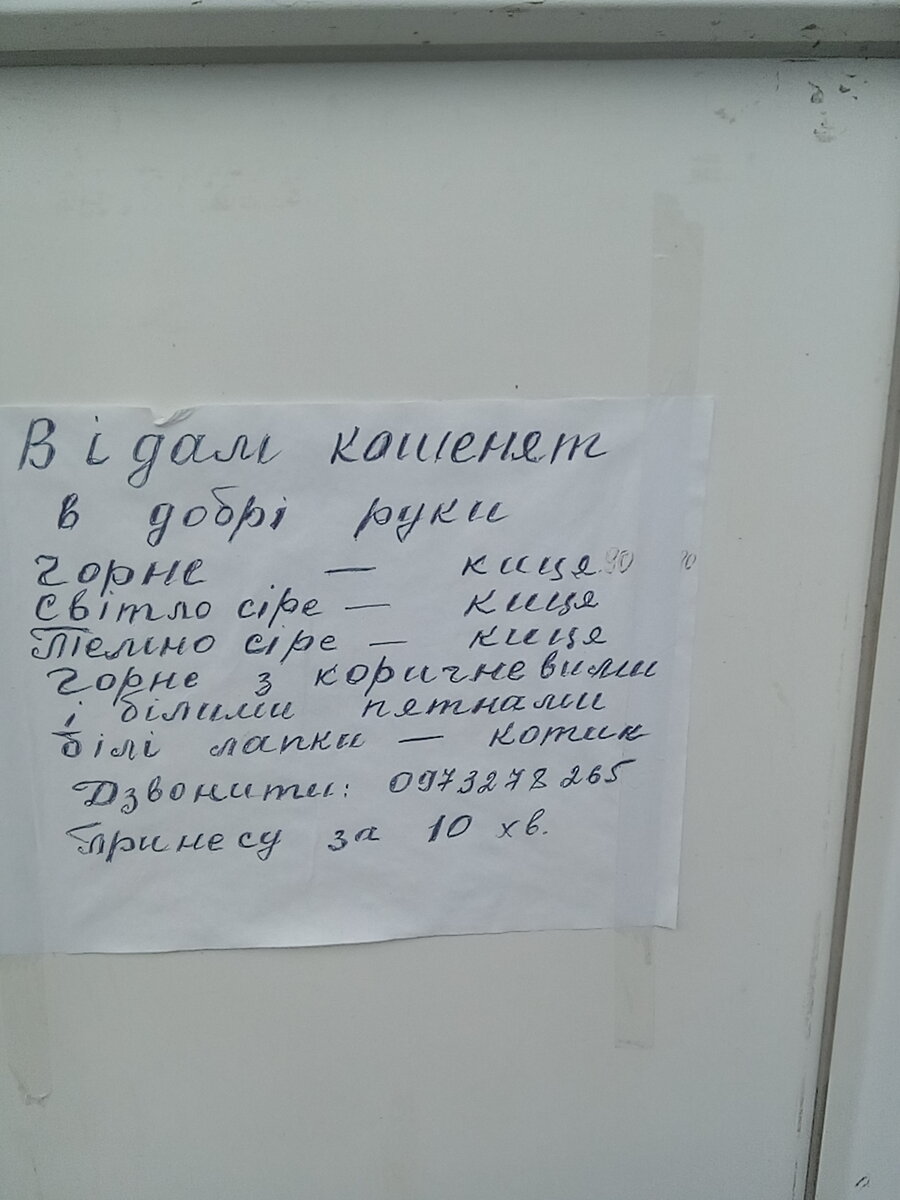 Відам кошенят
в добрі руки
Чорне — киця
Світло сіре — киця
Темно сіре — киця
Чорне з коричневими
і білими пятнами
білі лапки — котик
Дзвонити: 0973278265
Принесу за 10 хв.